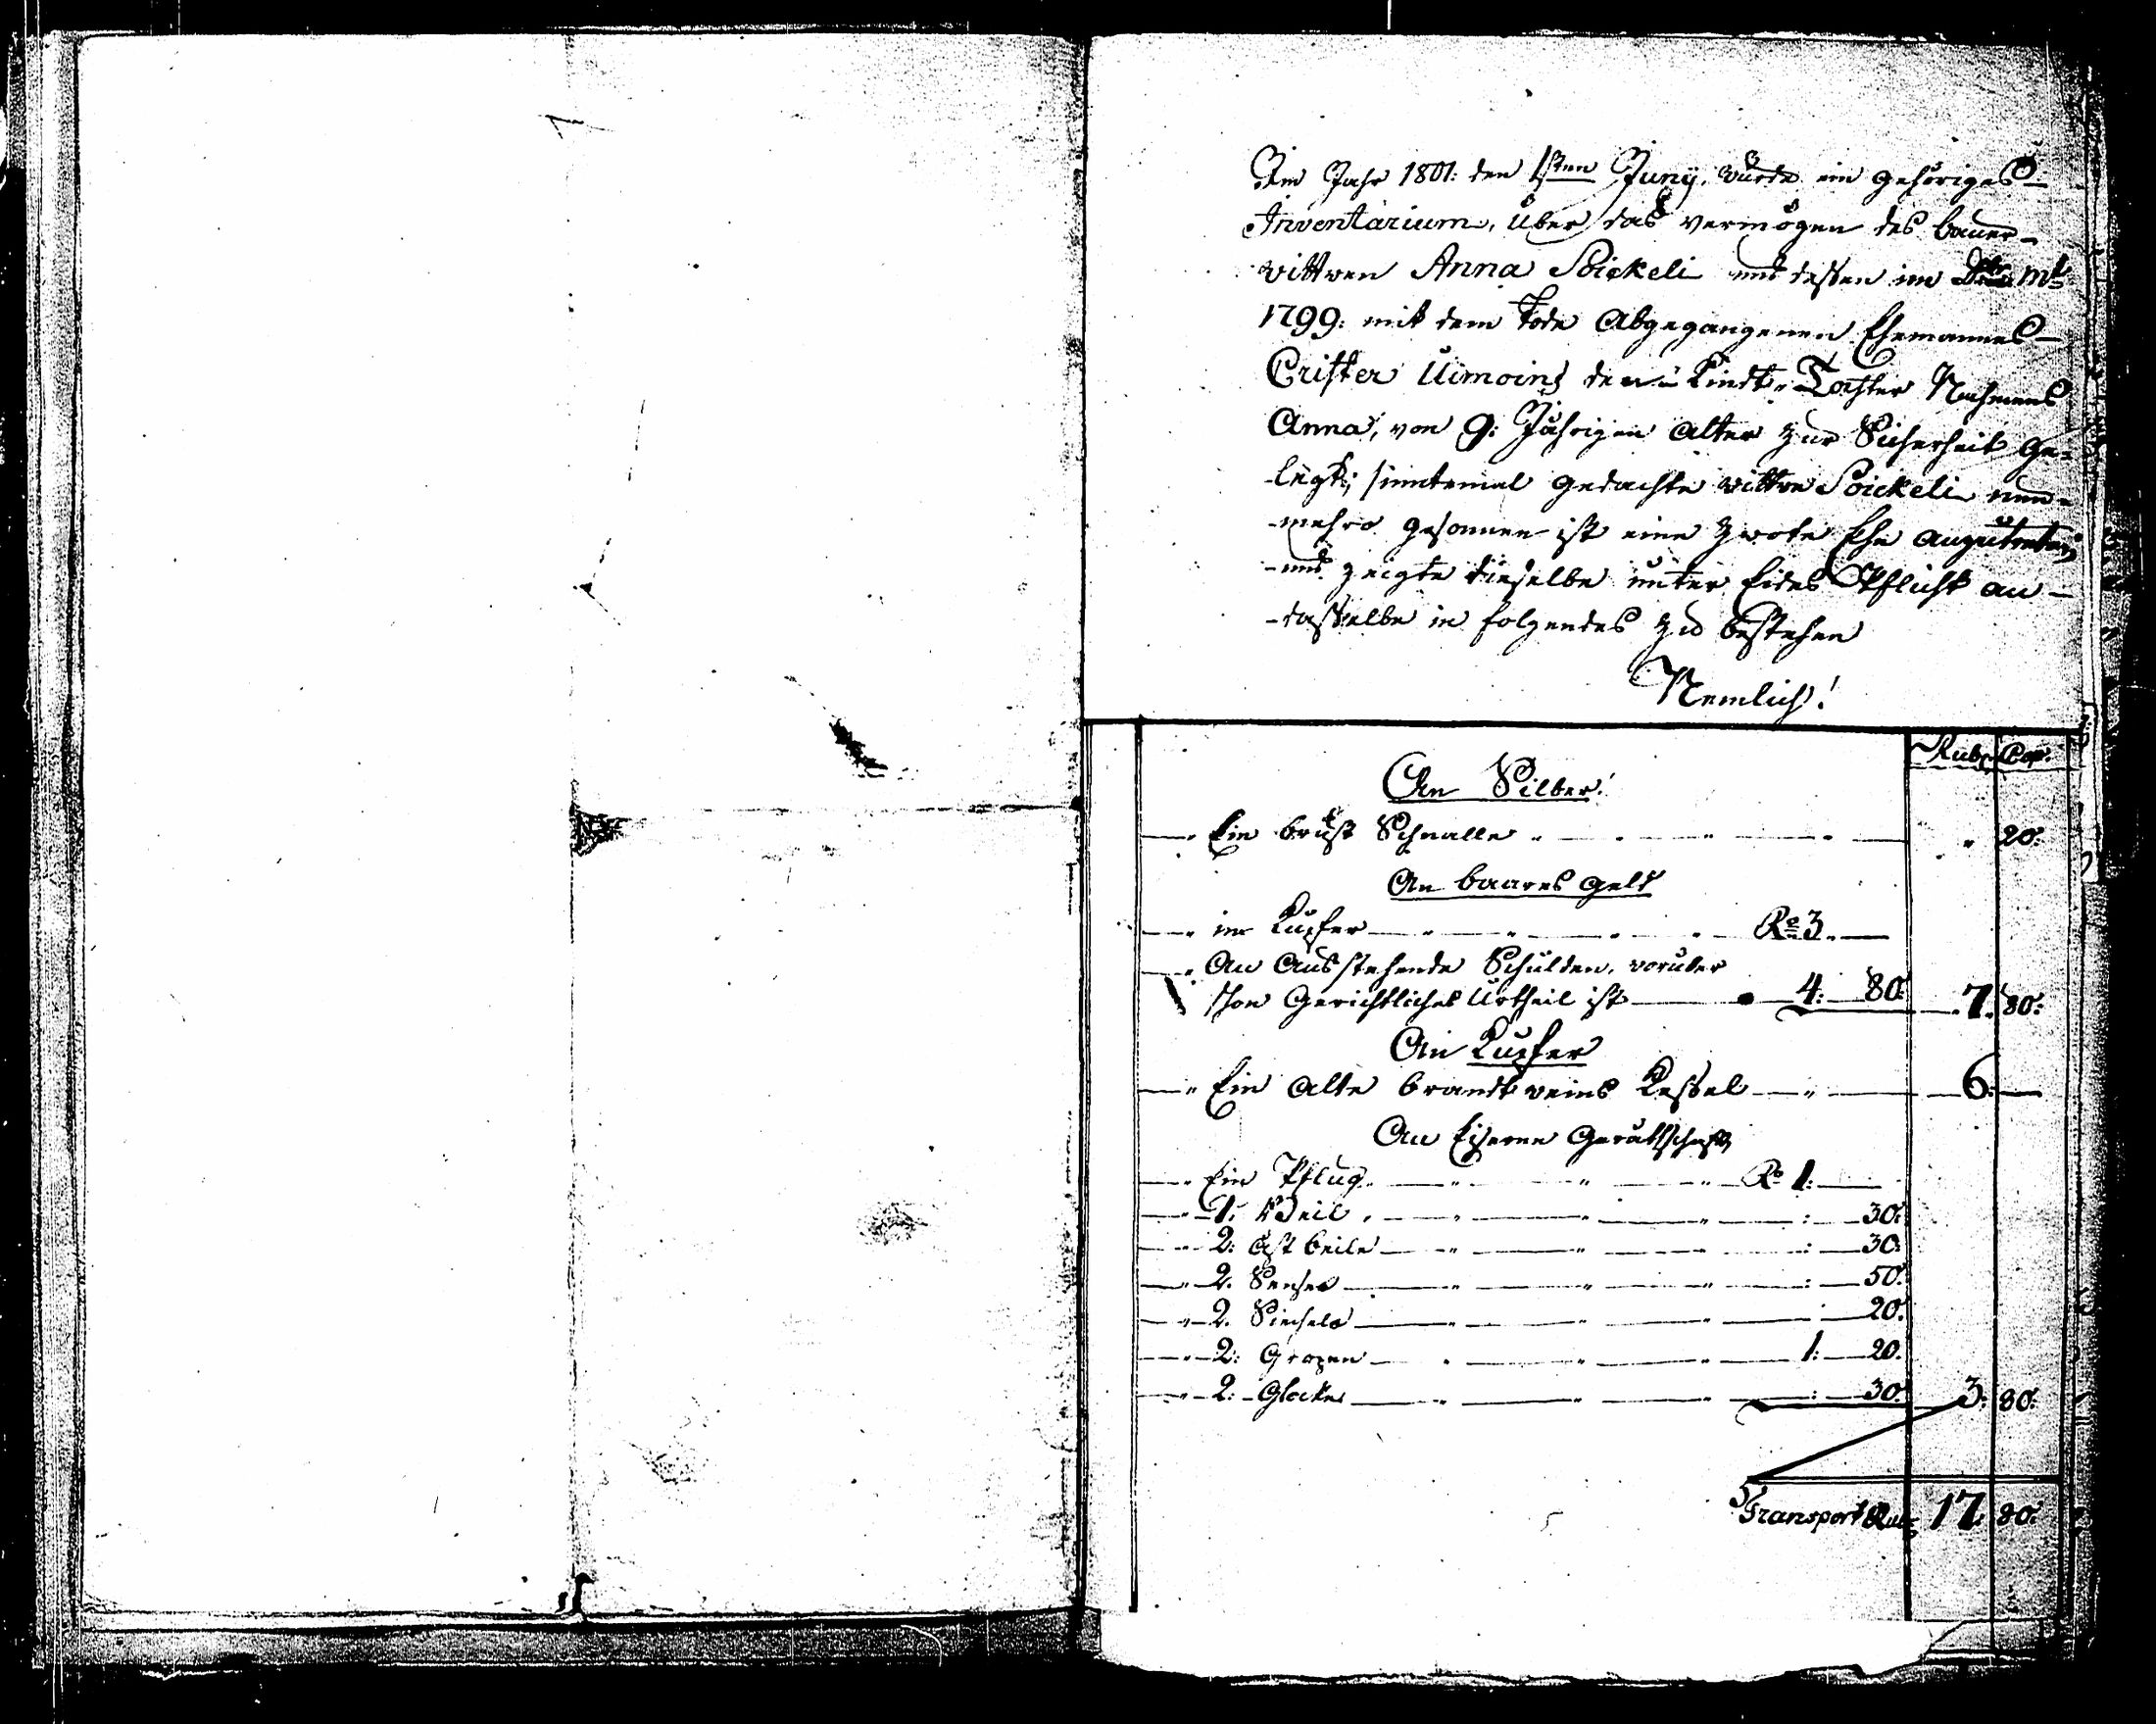 Im Jahr 1801: den 1sten Junÿ, wurde ein gehöriges
Inventarium, über das vermögen des bauer-
wittwen Anna Soickeli und dessen im Mt
1799: mit dem Tode Abgegangenen Ehemannes
Crister Uimoins den Kindt Tochter Nahmens
Anna, von 9: Jährigen Alter zur Sicherheit ge-
-legt; sinntemal gedachte wittwe Soickeli nun-
-mehro gesonnen ist eine zwote Ehe anzutreten,
-und zeigte dieselbe unter Eides Pflicht an
-dasselbe in folgendes zu bestehen
Nemlich!
Rub. Cop.
An Silber!
" Ein brust Schnalle " " 20:
An baares geld
" in Kupfer Ro 3.
" An Ausstehende Schulden, worüber
schon Gerichtliches Urtheil ist 4: 80: 7. 80:
An Kupfer
" Ein Alte brandtweins Kessel 6:
An Eiserne Gerätschaft
" Ein Pflug Ro 1:
" 1: Beil 30:
" 2: Ast beile 30:
" 2. Sensen 50:
" 2. Sichels 20:
" 2: Gropen 1: 20.
" 2: Glocken 30: 3: 80:
Transport Rub 17 80: